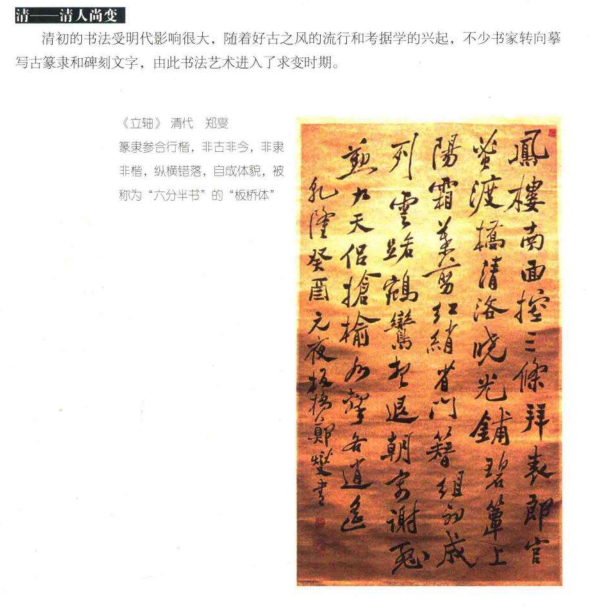 清——清人尚变
清初的书法受明代影响很大，随着好古之风的流行和考据学的兴起，不少书家转向摹
写古篆隶和碑刻文字，由此书法艺术进入了求变时期。
《立轴》 清代 郑燮
篆隶参合行楷，非古非今，非隶
非楷，纵横错落，自成体貌，被
称为“六分半书”的“板桥体”
鳳樓南面控三條拜表郎官
蚤渡橋清洛曉光鋪碧簟上
陽霜葉剪紅綃省門簪組初成
列雲路鵷鸞想退朝寄謝殷
懃九天侶搶榆水擊各逍遙
乾隆癸酉元夜板橋鄭燮書